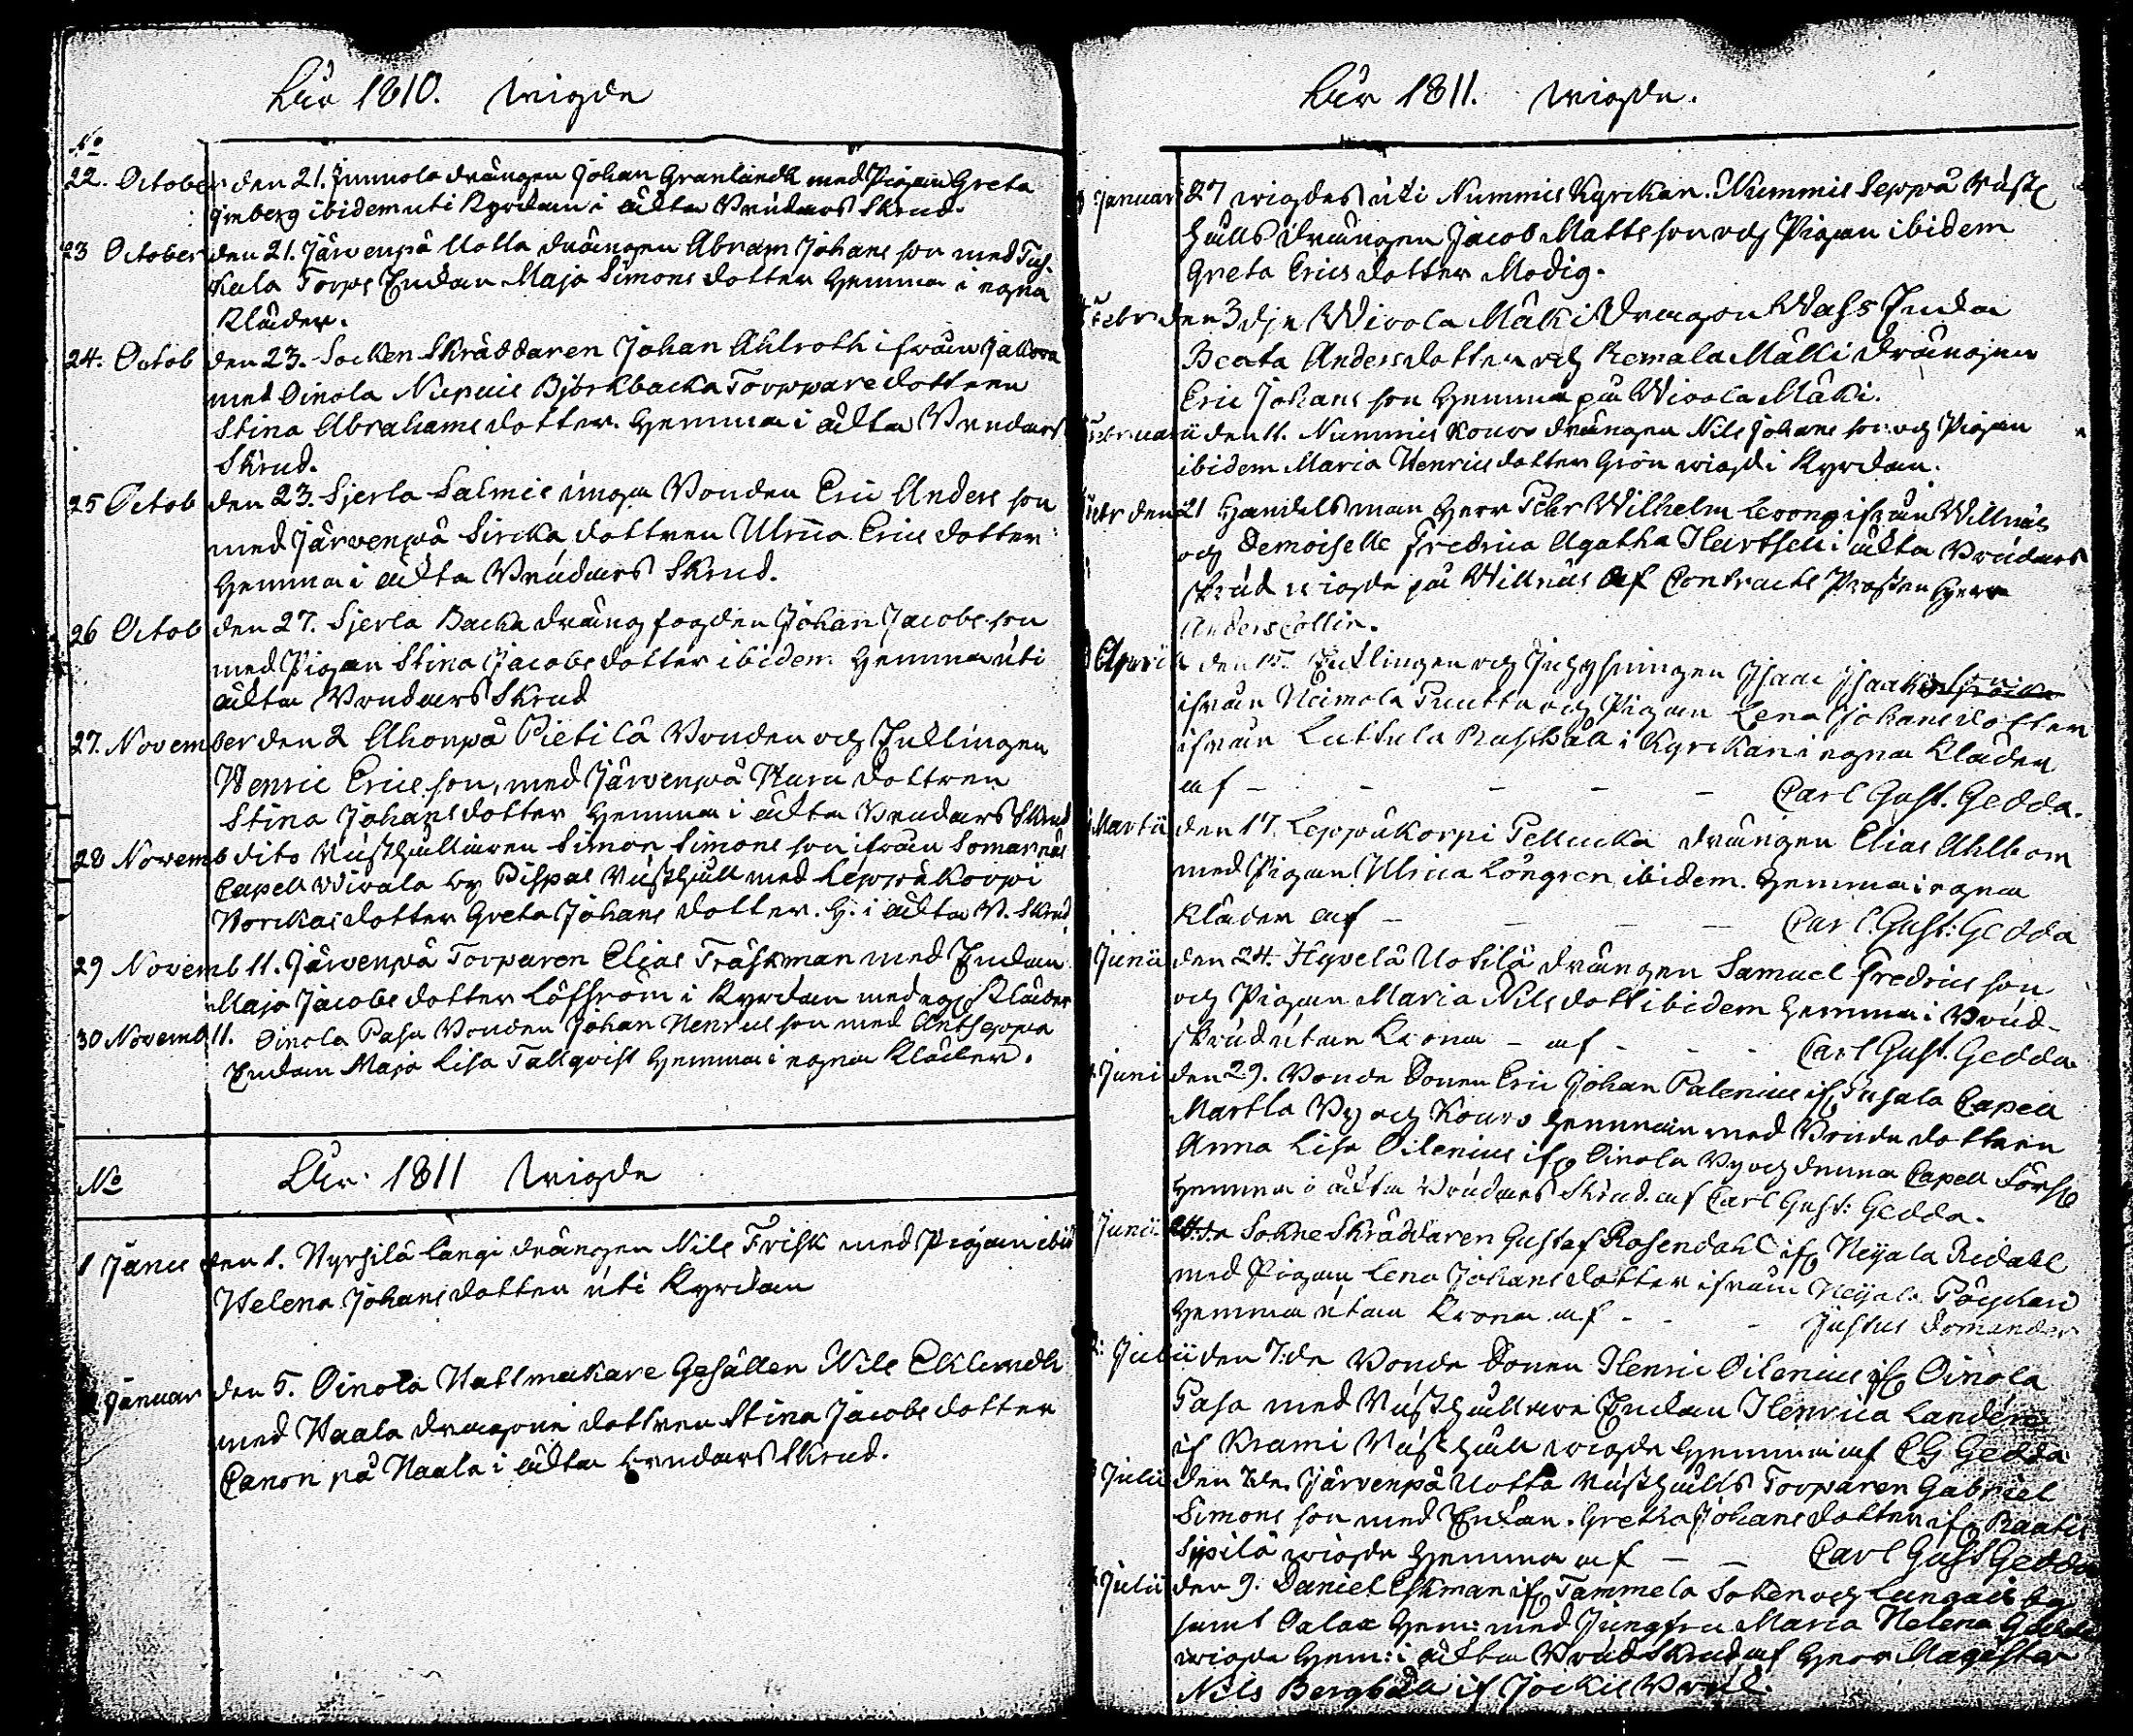 Åår 1810. wigde
No
22. October den 21. Jumola drängen Johan Granlindh med Pigan Greta
Imberg ibidem uti Kyrckan i äckta Brudars Skrud.
23 October den 21. Järvenpä Uotla drängen Abram Johans son med Tus-
kula Torps Enckan Maja Simons dotter hemma i egna
Kläder.
24. Octob den 23. Socken Skräddaren Johan Ahlroth ifrån
med Oinola Björkbacka Torppare dottren
Stina Abrahams dotter. hemma i äckta Brudars
Skrud.
25 Octob den 23. Sjerla Salmis unga Bonden Eric Anders son
med Järvenpä Sircka dottren Ulrica Erics dotter
hemma i äckta Brudars Skrud.
26 Octob den 27. Sjerla Backa dräng fogden Johan Jacobs son
med Pigan Stina Jacobs dotter ibidem hemma uti
äckta Brudars Skrud
27. November den 2 Ahonpä Pietilä Bonden och Encklingen
Henric Erics son, med Järvenpä dottren
Stina Johans dotter hemma i äckta Brudars Skrud
28 Novemb dito Rusthållaren Simon Simons son ifrån Somarnäs
Capell Wirala by Pispas Rusthåll med Leppäkorpi
Norckas dotter Greta Johans dotter. h. i äckta B. Skrud
29 Novemb 11. Järvenpä Torparen Elias Träskman med Enckan
Maja Jacobs dotter Löfström i Kyrckan med egs Kläder
30 Novemb 11. Oinola Pasa Bonden Johan Henrics son med Antseppa
Enckan Maja Lisa Tallqvist hemma i egna Kläder.
No Åår 1811 wigde
1 Janu den 1. Hyrsilä Längi drängen Nils Frisk med Pigan ibid
Helena Johans dotter uti Kyrckan
2 Januar den 5. Oinola Hattmakare Gesällen Nils Eklundh
med Haala dragone dottren Stina Jacobs dotter
Canon på Haala i äckta brudars Skrud.
Åår 1811. wigde.
3 Januar 27 wigdes uti Nummis Kyrckan. Nummis Seppä Rust
hålls drängen Jacob Matts son och Pigan ibidem
Greta Erics dotter Modig.
Febr den 3dje Wivola Mäki Dragon Wass Encka
Beata Anders dotter och Remala Mälli drängen
Eric Johans son hemma på Wivola Mäki.
Februarii den 11. Nummis Kouvo drängen Nils Johans son och Pigan
ibidem Maria Henrics dotter Grön wigd i Kyrckan.
Febr den 21 Handelsman Herr Petr Wilhelm Levong ifrån Willnäs
och Demoiselle Fredrica Agatha Hertsell i äckta Brudars
skrud wigde på Willnäs af Contracts Prosten Herr
Anders Collin.
April den 15. Encklingen och Inhysingen Isaac Isaks son
ifrån Neimola Puutta och Pigan Lena Johans dotter
ifrån Luttula Rusthåll i Kyrckan i egna Kläder
af - - - - - Carl Gust. Gedda.
Martii den 17. Leppäkorpi Pellucka drängen Elias Ahlbom
med Pigan Ulrica Löngren ibidem. hemma i egna
Kläder af - - - Carl. Gust: Gedda
Junii den 24. Hyvelä Uotilä drängen Samuel Fredrics son
och Pigan Maria Nils dott ibidem hemma i Brud-
skrud utan Krona - af - - - Carl Gust. Gedda
Juni den 29. Bonde Sonen Eric Johan Palenius if Pusala Capell
Martla By och Kouvo hemman med Bonde dottren
Anna Lisa Oilenius if Oinola By och denna Capell Förs
hemma i äckta Brudars Skrud. af Carl Gust: Gedda.
Junii Sokne Skräddaren Gustaf Rosendahl if Neijala Ridall
med Pigan Lena Johans dotter ifrån Neijala
hemma utan Krona af - - - Justus Domander
Julii den 7:de Bonde Sonen Henric Oilenius if Oinola
Pasa med Rusthållare Enckan Henrica Landén
if Krami Rusthåll wigde hemma af CG Gedda
Julii den 7de. Järvenpä Uotta Rusthålls Torparen Gabriel
Simons son med Enckan. Gretha Johans dotter if Raatis
Sipilä wigde hemma af - - Carl Gust Gedda
Julii den 9. Daniel Eskman if Tammela Soken och Lungais by
samt Oalax hem: med Jungfru Maria Helena Gedda
wigde hem: i äckta Brud Skrud af Herr Magister
Nils Bergdahl if Jockis Bruk.